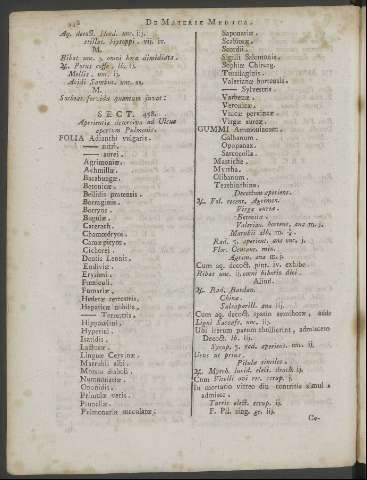 DE MATERIE MEDICA.
Aq. decoct. Hord. unc. iij.
stillat. hyssopi. vii. iv.
M.
Bibat unc. j. omni hora dimidiata.
Mellis. unc. ij.
Aceti Sambuc. unc. ss.
M.
Sorbeat fervida quantum juvat:
SECT. 458.
Aperientia detersiva ad Ulcus
apertum Pulmonis.
FOLIA Adianthi vulgaris.
—— nigri.
—— aurei.
Agrimoniæ.
Achmillæ.
Barbareæ.
Betonicæ.
Bellidis pratensis.
Borraginis.
Botryos.
Bugulæ.
Ceterach.
Chamædryos.
Camæpityos.
Cichorei.
Dentis Leonis.
Endiviæ.
Erysimi.
Fœniculi.
Fumariæ.
Hederæ terrestris.
Hepaticæ nobilis.
—— Terrestris.
Hipposelini.
Hyperici.
Isatidis.
Lactucæ.
Linguæ Cervinæ.
Marrubii albi.
Morsus diaboli.
Nummulariæ.
Ononidis.
Primulæ veris.
Prunellæ.
Pulmonariæ maculatæ:
Saponariæ.
Scabiosæ.
Scordii.
Sigilli Salomonis.
Sophiæ Chirurg.
Tussilaginis.
Valerianæ hortensis.
—— Sylvestris.
Verbenæ.
Veronicæ.
Vincæ pervincæ.
Virgæ aureæ.
GUMMI Ammoniacum.
Galbanum.
Opopanax.
Sarcocolla.
Mastiche.
Myrrha.
Olibanum.
Terebinthina.
Decoctum aperiens.
℞. Fol. recent. Agrimon.
Virgæ aureæ.
Betonicæ.
Valerian. hortens. ana m. j.
Marrubii alb. m. ½.
Rad. 5. aperient. ana unc. j.
Flor. Centaur. min.
Cum aq. decoct. pint. iv. exhibe
Bibat unc. ij. omni bihorio diei.
Aliud.
℞. Rad. Bardan.
Chinæ.
Salsaparill. ana iij.
Ubi iterum parum ebullierint, admisceto
Decoct. lb. iij.
Syrup. 5. rad. aperient. unc. ij
Usus ut prius.
Pilulæ similes.
℞. Myrrh. lucid. elect. drach ij
Cum Vitelli ovi rec. scrup. j.
In mortario vitreo diu contritis simul
admisce.
Turris elect. scrup. ij.
F. Pil. sing. gr. iij.
Co-